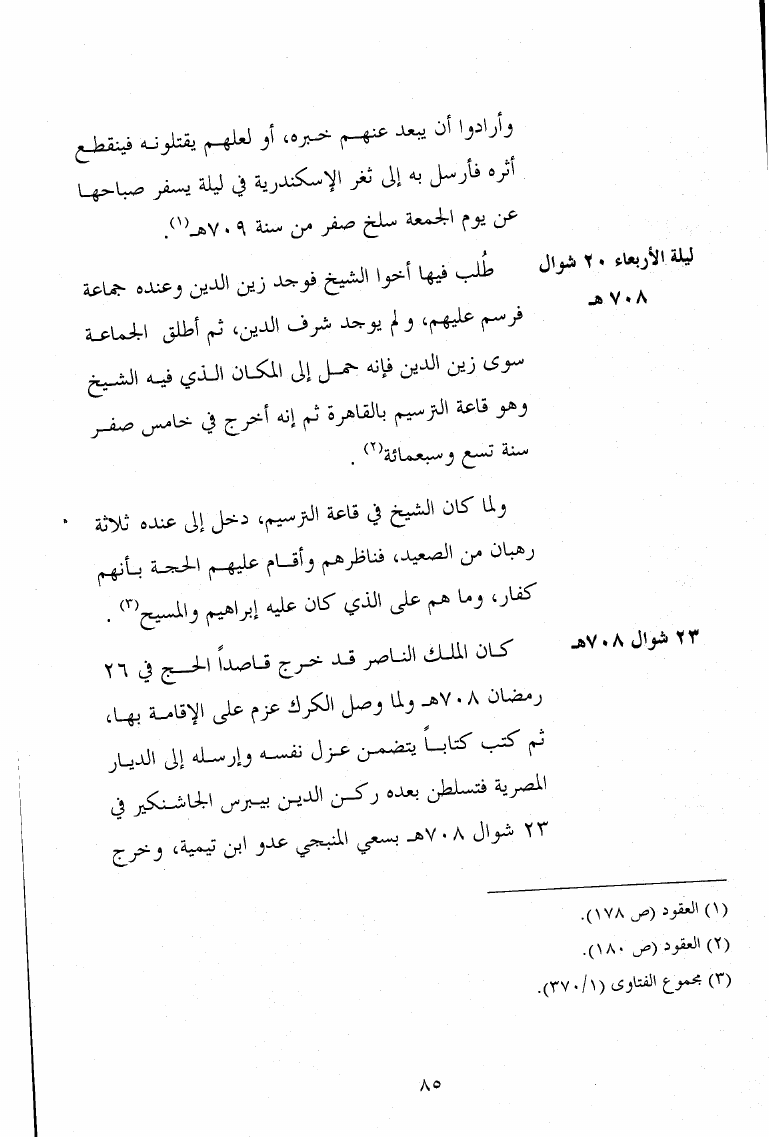 وأرادوا أن يبعد عنهم خبره، أو لعلهم يقتلونه فينقطع
أثره فأرسل به إلى ثغر الإسكندرية في ليلة يسفر صباحها
عن يوم الجمعة سلخ صفر من سنة ٧٠٩هـ(١).
ليلة الأربعاء ٢٠ شوال
٧٠٨ هـ
طُلب فيها أخوا الشيخ فوجد زين الدين وعنده جماعة
فرسم عليهم، ولم يوجد شرف الدين، ثم أطلق الجماعة
سوى زين الدين فإنه حمل إلى المكان الذي فيه الشيخ
وهو قاعة الترسيم بالقاهرة ثم إنه أخرج في خامس صفر
سنة تسع وسبعمائة(٢) .
ولما كان الشيخ في قاعة الترسيم، دخل إلى عنده ثلاثة
رهبان من الصعيد، فناظرهم وأقام عليهم الحجة بأنهم
كفار، وما هم على الذي كان عليه إبراهيم والمسيح(٣) .
٢٣ شوال ٧٠٨هـ
كان الملك الناصر قد خرج قاصداً الحج في ٢٦
رمضان ٧٠٨هـ ولما وصل الكرك عزم على الإقامة بها،
ثم كتب كتاباً يتضمن عزل نفسه وإرسله إلى الديار
المصرية فتسلطن بعده ركن الدين بيبرس الجاشنكير في
٢٣ شوال ٧٠٨هـ بسعي المنبجي عدو ابن تيمية، وخرج
(١) العقود (ص ١٧٨).
(٢) العقود (ص ١٨٠).
(٣) مجموع الفتاوى (٣٧٠/١).
٨٥